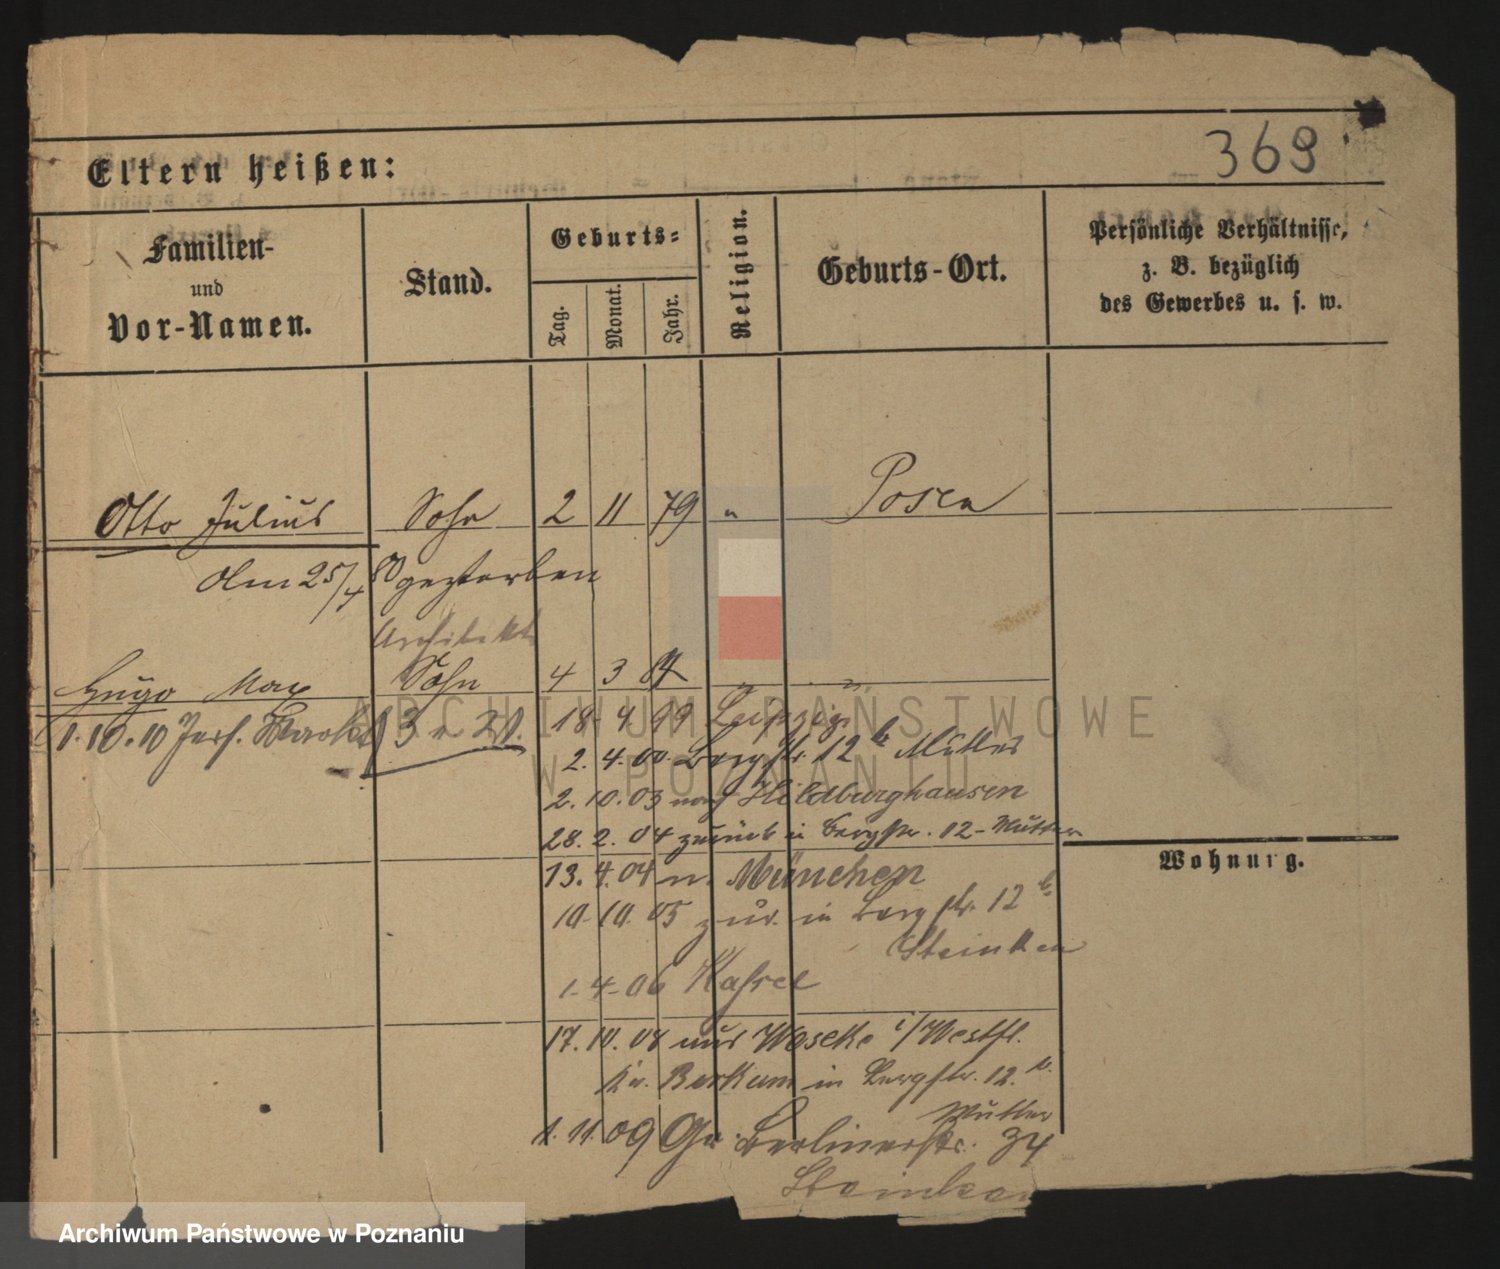 369
Eltern heißen:
Familien-
und
Vor-Namen.
Stand.
Geburts-
Tag.
Monat.
Jahr.
Religion.
Geburts-Ort.
Persönliche Verhältnisse,
z. B. bezüglich
des Gewerbes u. s. w.
Otto Julius Sohn 2 11 79 " Posen
Am 25/4 80 gestorben
Architekt
Hugo Max Sohn 4 3 " "
1.10.10 Jers.
18. 4. 99 Leipzig
2. 4. 00. Bergstr. 12b Mutter
2. 10. 03 nach Hildburghausen
28. 2. 04 zurück in Bergstr. 12 - Mutter
Wohnung.
13. 4. 04 n. München
10. 10. 05 zur. in Bergstr. 12b
Steinken
1. 4. 06 Kassel
17. 10. 08 aus i/Westfl.
in Bergstr. 12.
Mutter
1. 11. 09 Berlinerstr.
ARCHIWUM PAŃSTWOWE
W POZNANIU
Archiwum Państwowe w Poznaniu